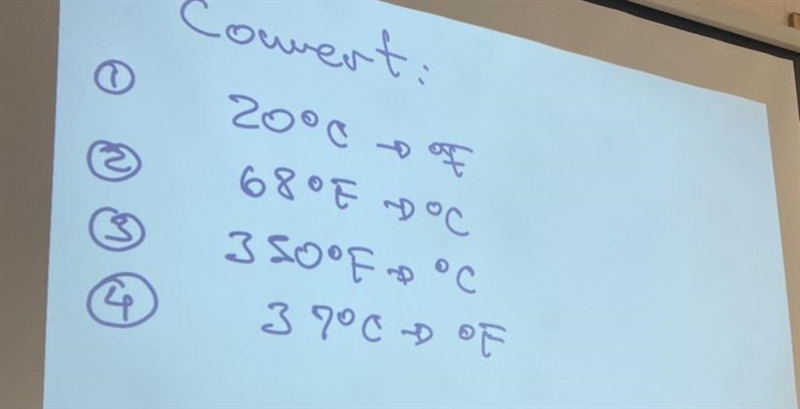 Convert:
① 20°C → °F
② 68°F → °C
③ 350°F → °C
④ 37°C → °F